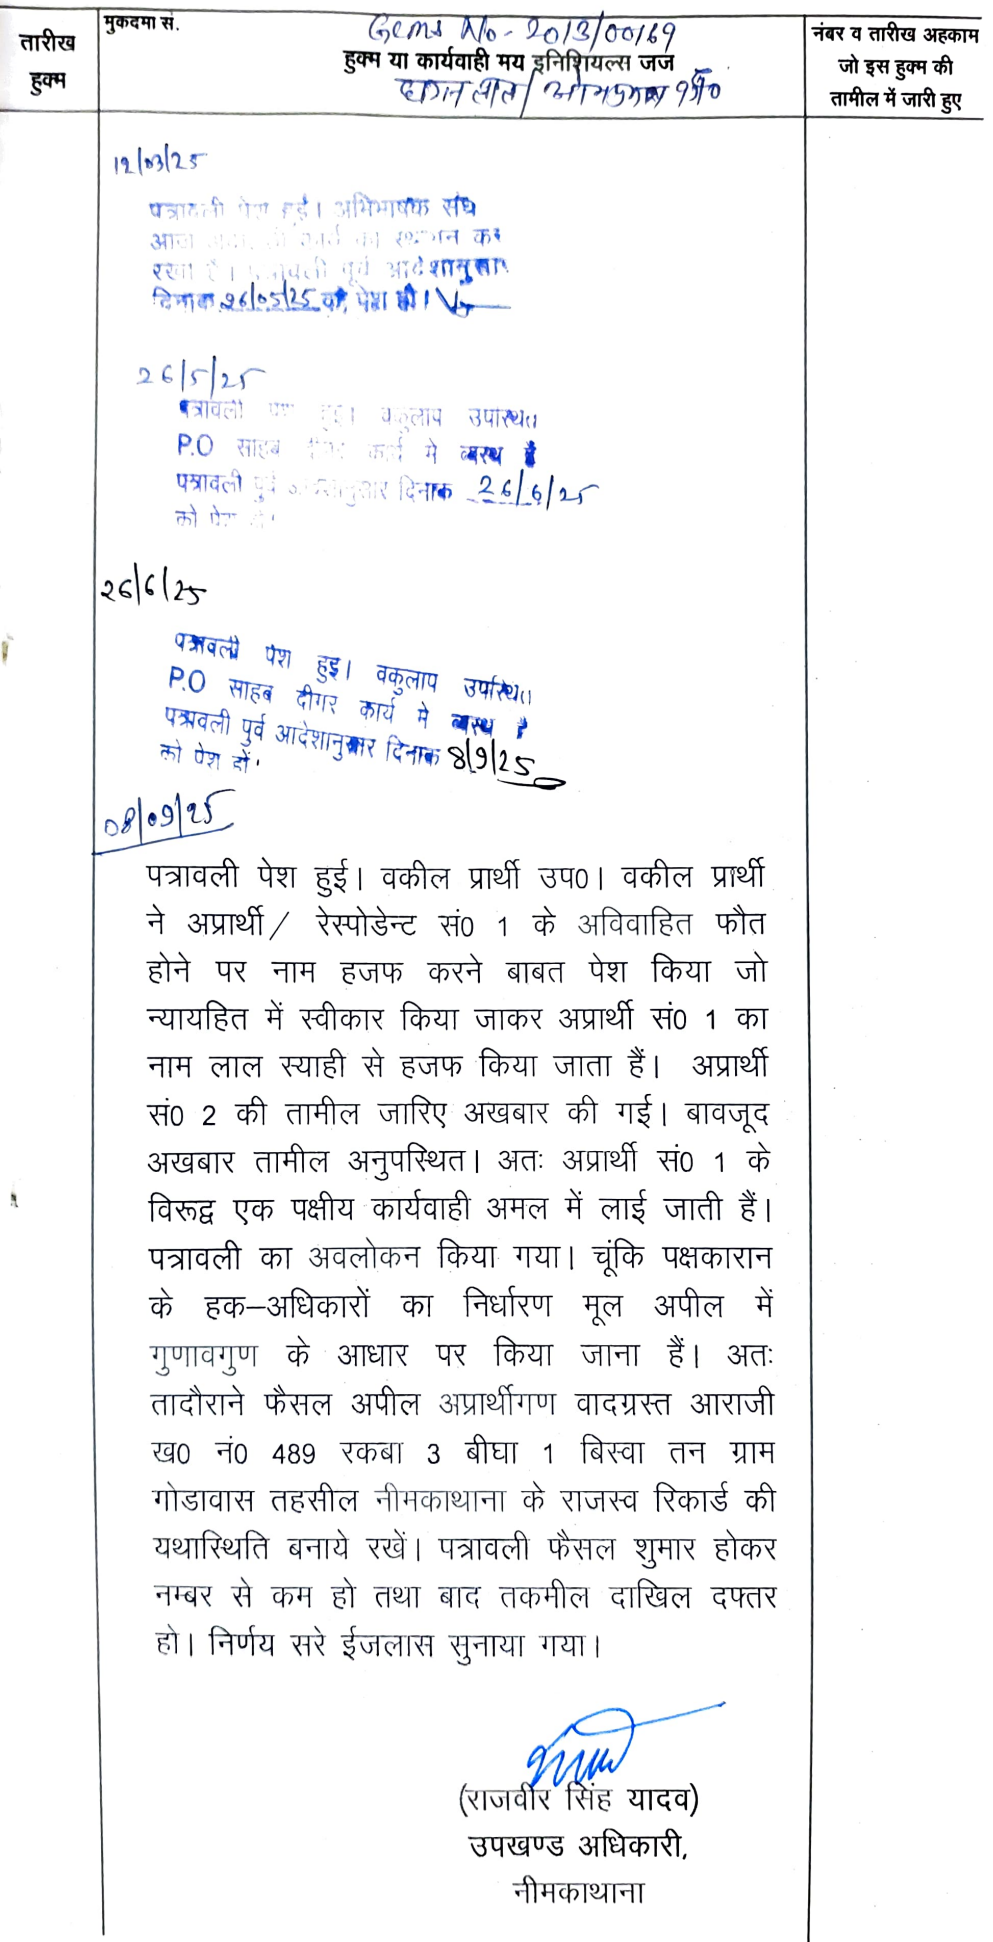 तारीख
हुक्म
मुकदमा सं.
Gcms No- 2013/00169
हुक्म या कार्यवाही मय इनिशियल्स जज
नंबर व तारीख अहकाम
जो इस हुक्म की
तामील में जारी हुए
12/03/25
पत्रावली पेश हुई। अभिभाषक संघ
रखा है। पत्रावली पूर्व आदेशानुसार
दिनाक 26/05/25 को पेश हो।
26/5/25
पत्रावली पेश हुई। वकुलाप उपस्थित
P.O साहब दीगर कार्य मे व्यस्थ है
पत्रावली पुर्व आदेशानुसार दिनाक 26/6/25
को पेश हो
26/6/25
पत्रावली पेश हुइ। वकुलाप उपस्थित
P.O साहब दीगर कार्य मे व्यस्थ है
पत्रावली पुर्व आदेशानुसार दिनाक 8/9/25
को पेश हों
08/09/25
पत्रावली पेश हुई। वकील प्रार्थी उप०। वकील प्रार्थी
ने अप्रार्थी/ रेस्पोडेन्ट सं० 1 के अविवाहित फौत
होने पर नाम हजफ करने बाबत पेश किया जो
न्यायहित में स्वीकार किया जाकर अप्रार्थी सं० 1 का
नाम लाल स्याही से हजफ किया जाता हैं। अप्रार्थी
सं० 2 की तामील जारिए अखबार की गई। बावजूद
अखबार तामील अनुपस्थित। अतः अप्रार्थी सं० 1 के
विरूद्व एक पक्षीय कार्यवाही अमल में लाई जाती हैं।
पत्रावली का अवलोकन किया गया। चूंकि पक्षकारान
के हक–अधिकारों का निर्धारण मूल अपील में
गुणावगुण के आधार पर किया जाना हैं। अतः
तादौराने फैसल अपील अप्रार्थीगण वादग्रस्त आराजी
ख० नं० 489 रकबा 3 बीघा 1 बिस्वा तन ग्राम
गोडावास तहसील नीमकाथाना के राजस्व रिकार्ड की
यथास्थिति बनाये रखें। पत्रावली फैसल शुमार होकर
नम्बर से कम हो तथा बाद तकमील दाखिल दफ्तर
हो। निर्णय सरे ईजलास सुनाया गया।
(राजवीर सिंह यादव)
उपखण्ड अधिकारी,
नीमकाथाना